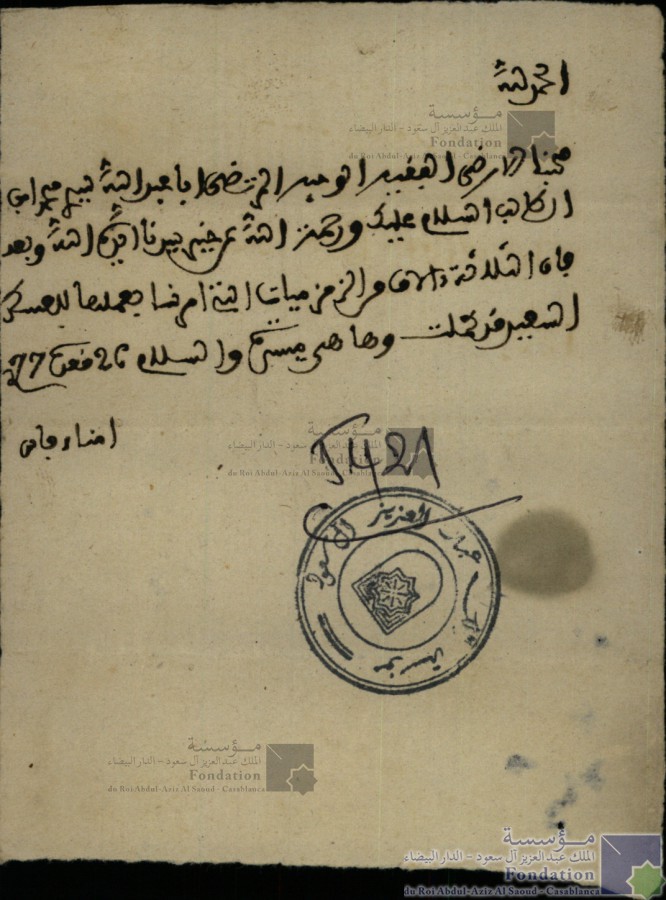 الحمد لله
محبنا الارضى الفقيه الوجيه المرتضى ابا عبد الله سيدي محمد ابن
الطالب السلام عليك ورحمة الله عن خير سيدنا ايده الله وبعد
فان الثلاثة الاف من الزميات التي امرنا بعملها للعسكر
السعيد قد كملت وها هي ميسرة والسلام 26 قعدة 77
امناء فاس
J421
عبد العزيز آل سعود
مؤسسة
الملك عبد العزيز آل سعود - الدار البيضاء
Fondation
du Roi Abdul-Aziz Al Saoud - Casablanca
مؤسسة
الملك عبد العزيز آل سعود - الدار البيضاء
Fondation
du Roi Abdul-Aziz Al Saoud - Casablanca
مؤسسة
الملك عبد العزيز آل سعود - الدار البيضاء
Fondation
du Roi Abdul-Aziz Al Saoud - Casablanca
مؤسسة
الملك عبد العزيز آل سعود - الدار البيضاء
Fondation
du Roi Abdul-Aziz Al Saoud - Casablanca